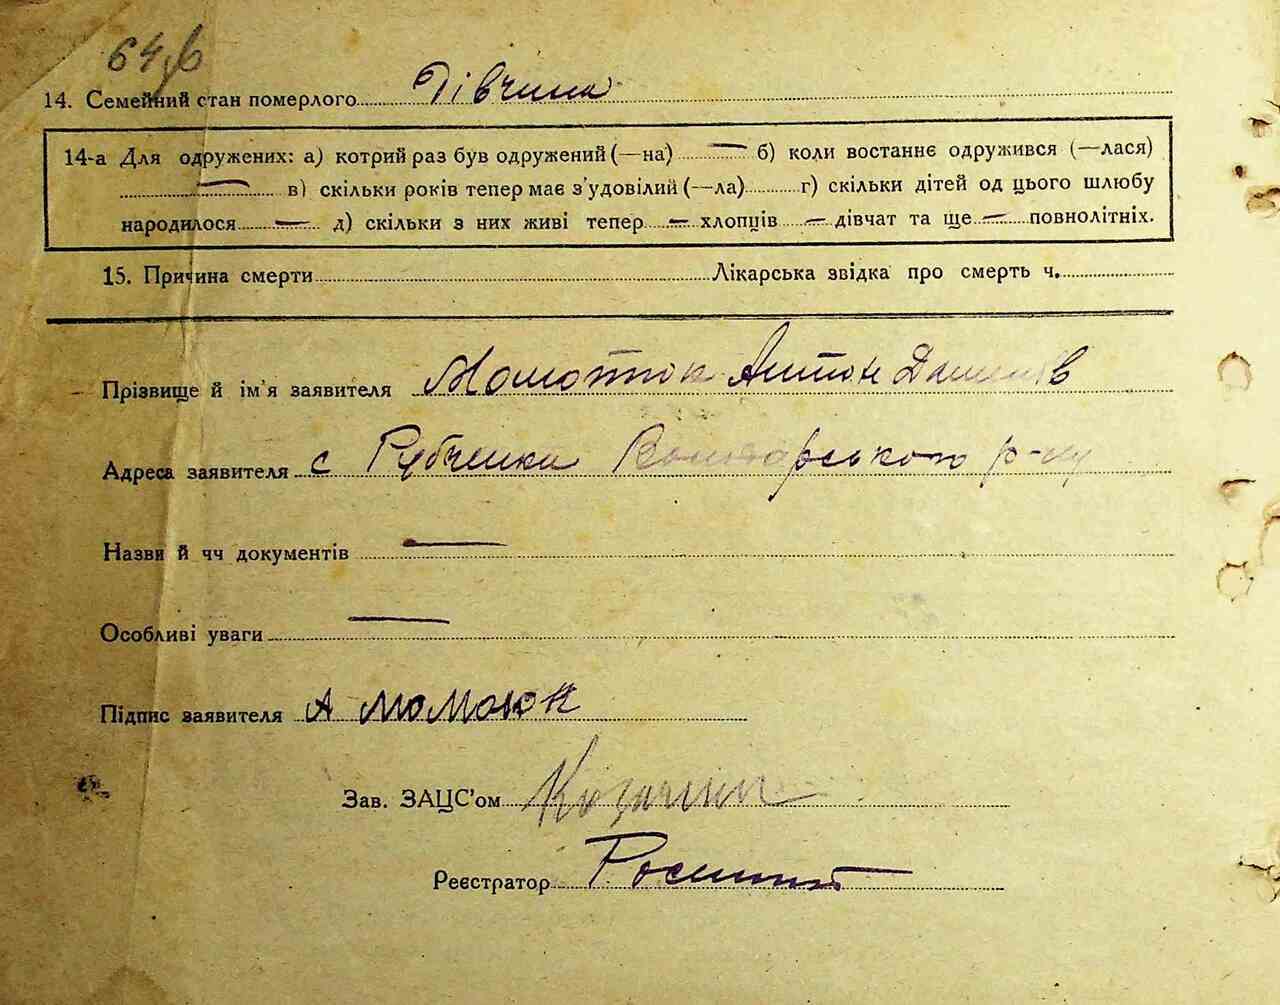 64
14. Семейний стан померлого Дівчина
14-а Для одружених: а) котрий раз був одружений (—на) — б) коли востаннє одружився (—лася)
— в) скільки років тепер має з'удовілий (—ла) г) скільки дітей од цього шлюбу
народилося — д) скільки з них живі тепер — хлопців — дівчат та ще — повнолітніх.
15. Причина смерти Лікарська звідка про смерть ч.
Прізвище й ім'я заявителя Антон
Адреса заявителя с Рубченки р-ну
Назви й чч документів —
Особливі уваги —
Підпис заявителя А Момоток
Зав. ЗАЦС'ом
Реєстратор